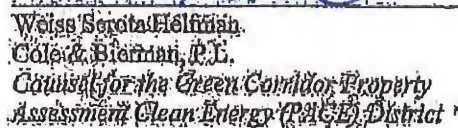 Weiss Serota Helfman
Cole & Bierman, P.L.
Counsel for the Green Corridor Property
Assessment Clean Energy (PACE) District